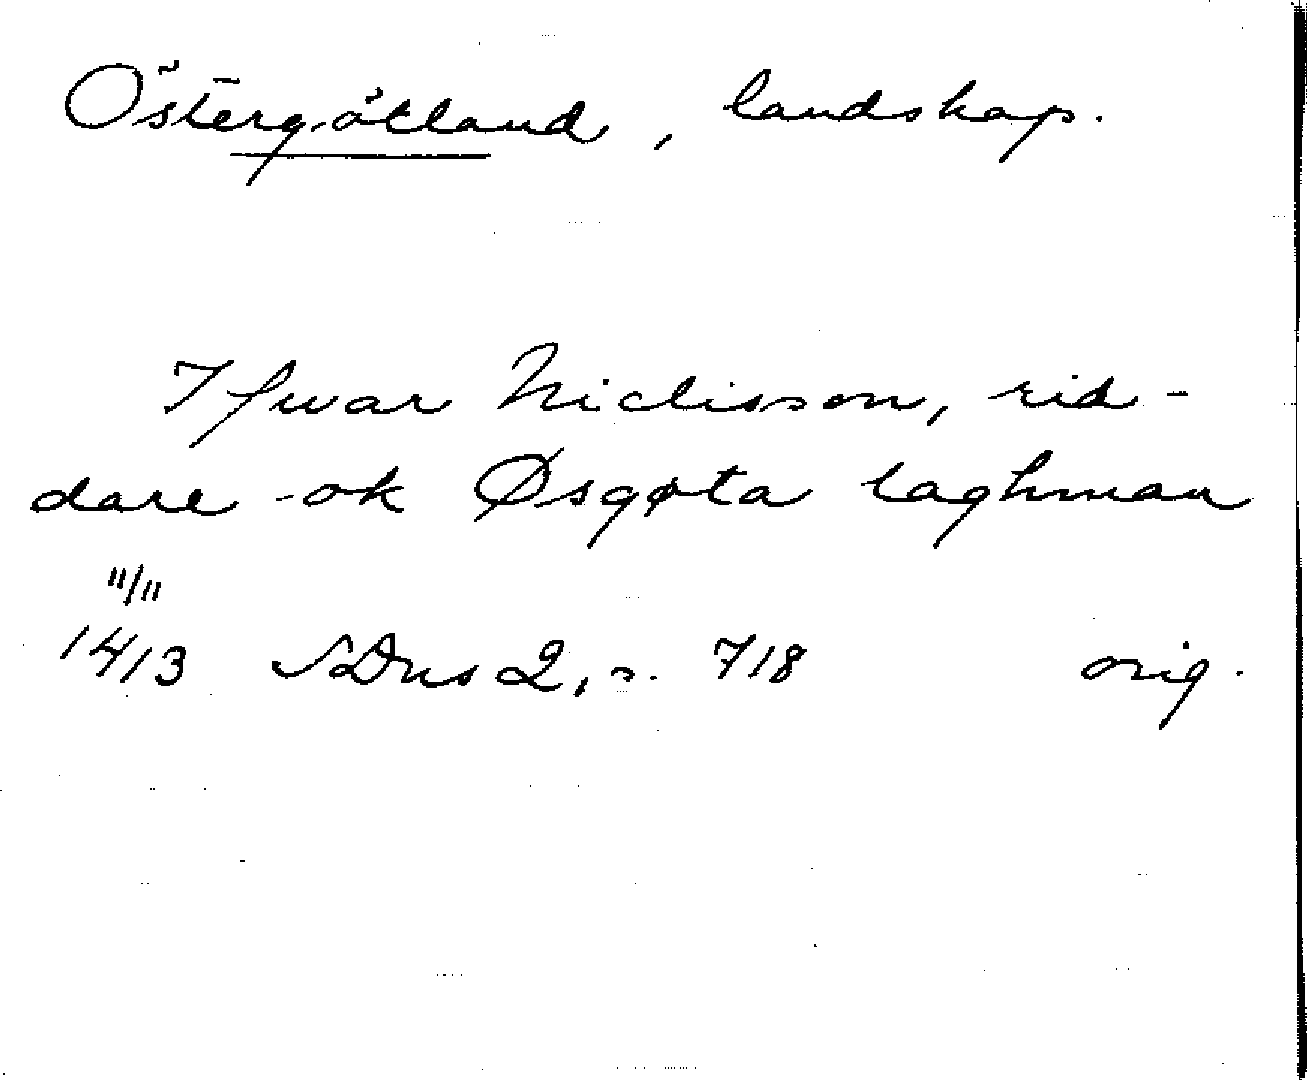 Östergötland, landskap.
Ifwar Niclisson, rid-
dare ok Øsgøta laghman
11/11
1413 SDns 2, s. 718 orig.